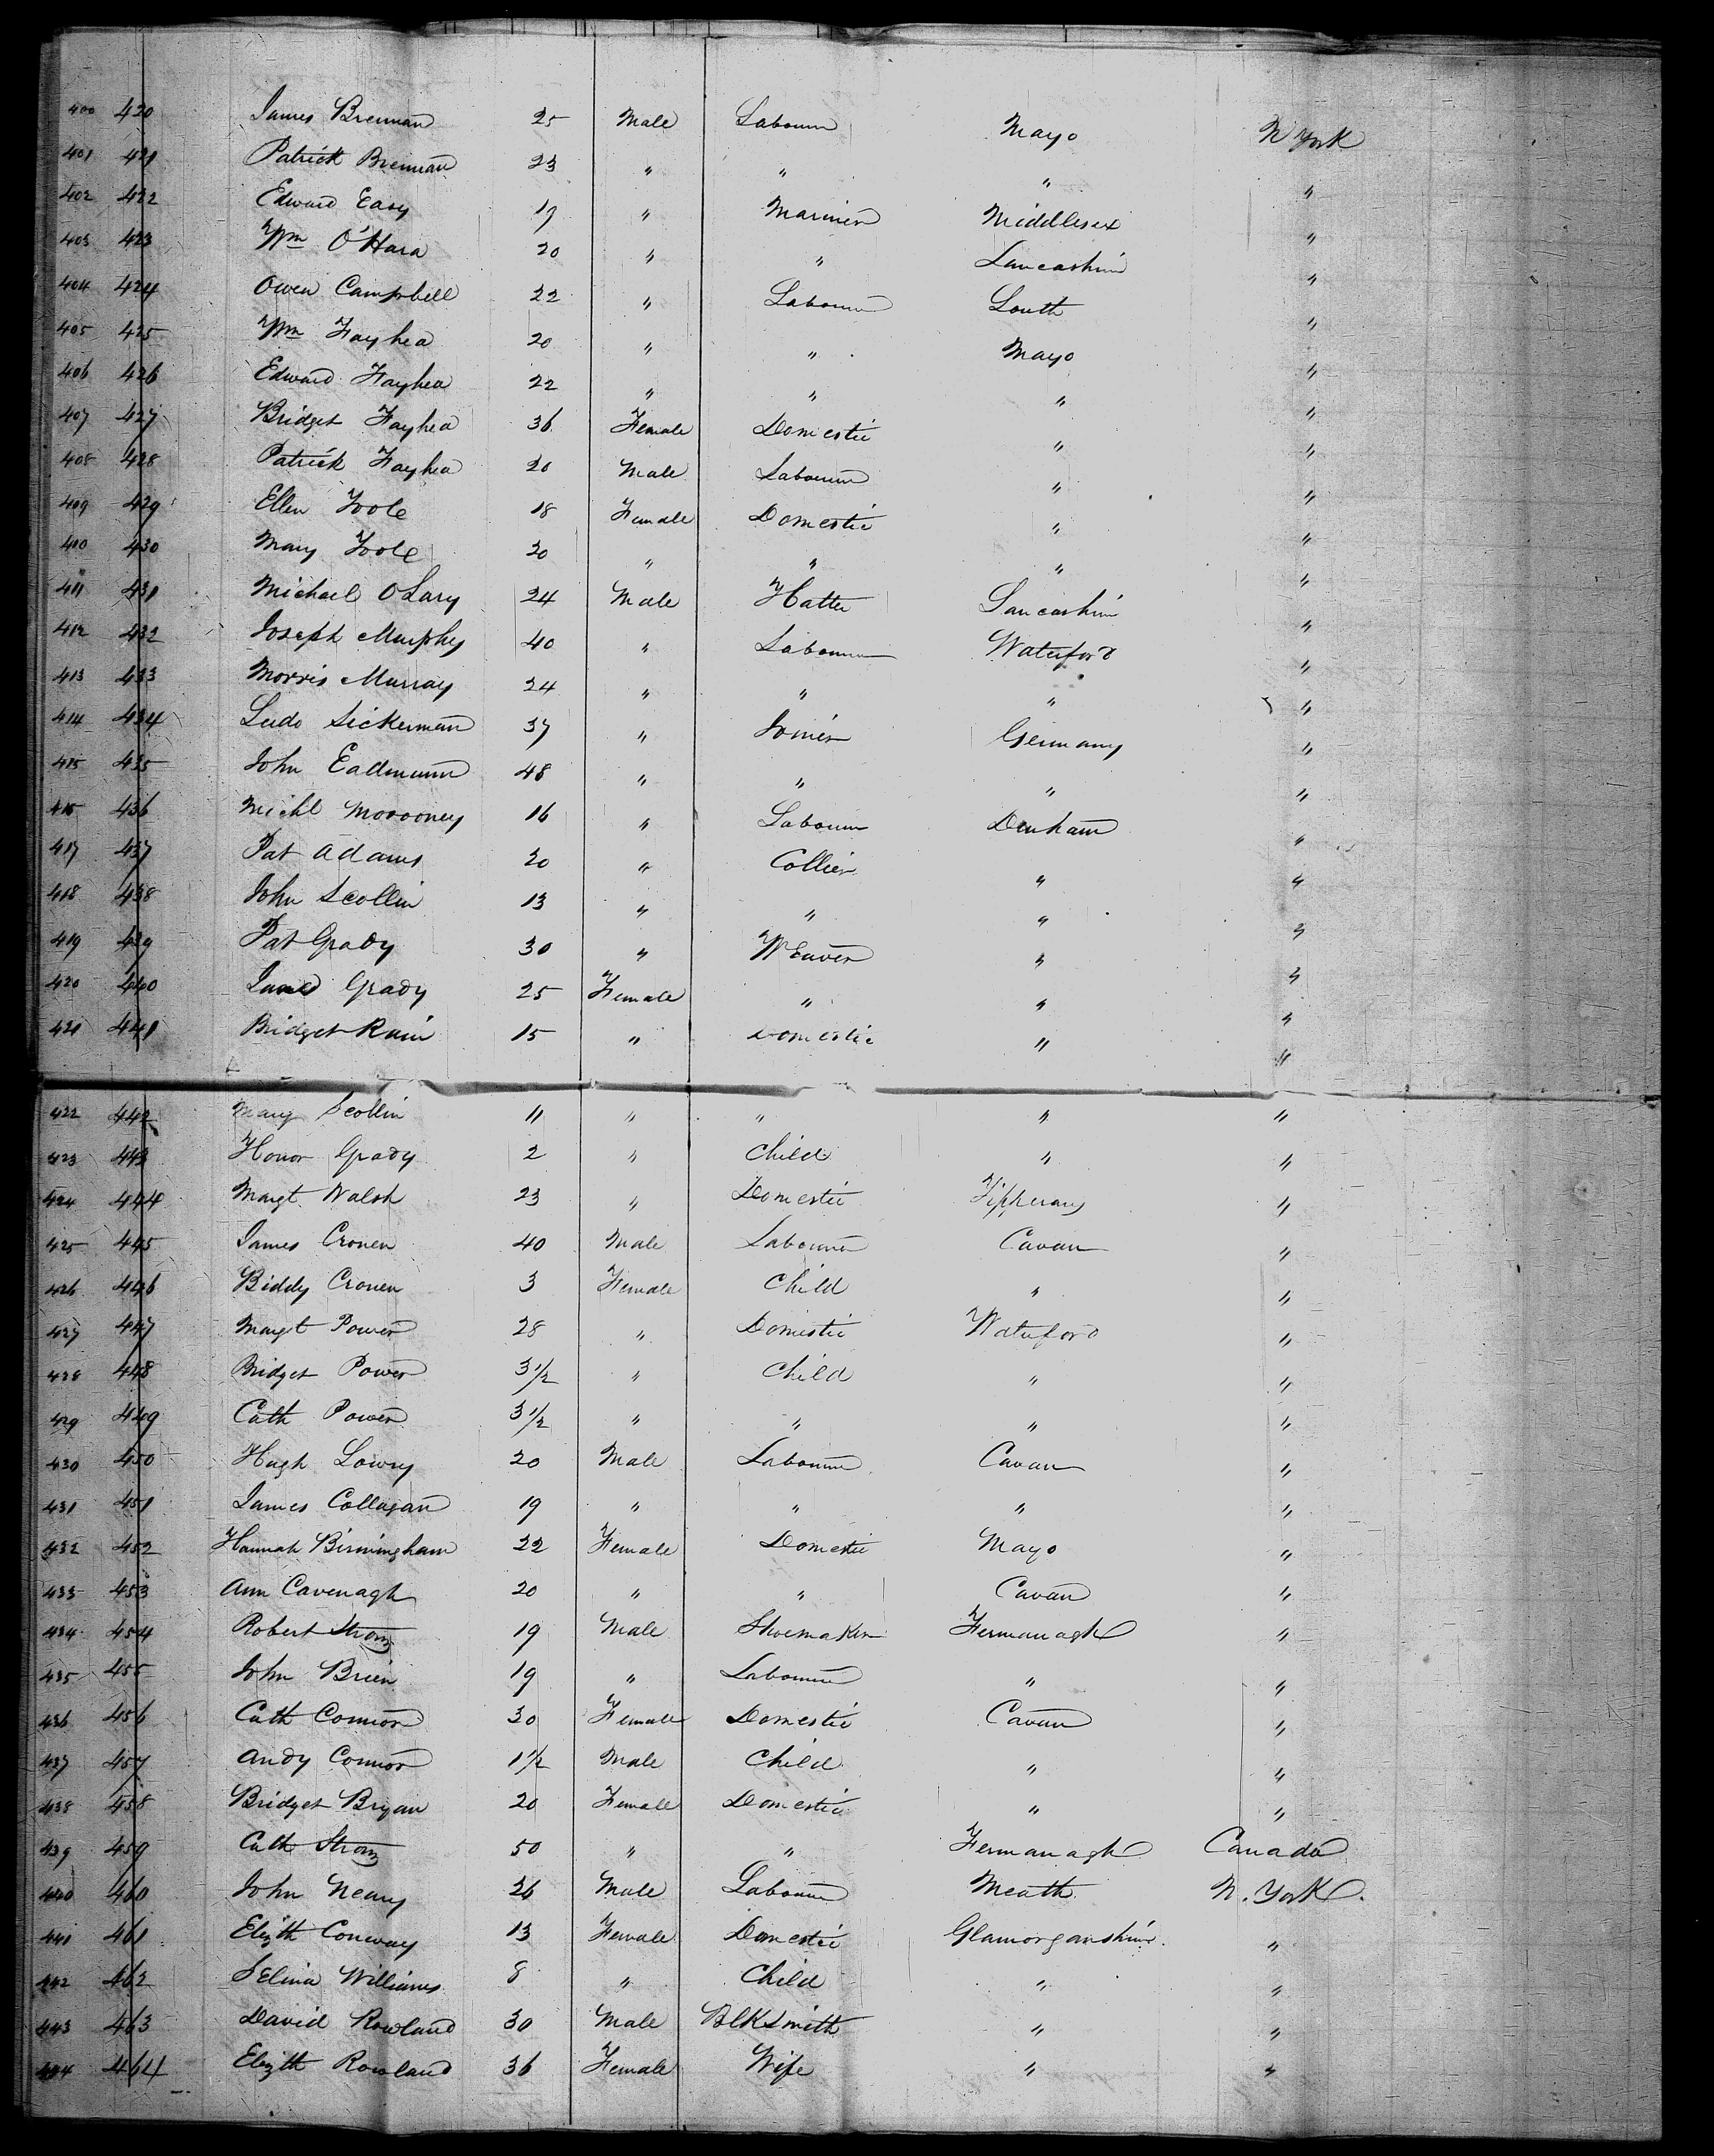 400 420 James Brennan 25 Male Labourer Mayo N York
401 421 Patrick Brennan 23 " " " "
402 422 Edward Easy 17 " Mariner Middlesex "
403 423 Wm O'Hara 20 " " Lancashire "
404 424 Owen Campbell 22 " Labourer Louth "
405 425 Wm Fayhea 20 " " Mayo "
406 426 Edward Fayhea 22 " " " "
407 427 Bridget Fayhea 36 Female Domestic " "
408 428 Patrick Fayhea 20 Male Labourer " "
409 429 Ellen Toole 18 Female Domestic " "
400 430 Mary Toole 20 " " " "
411 431 Michael OLary 24 Male Hatter Lancashire "
412 432 Joseph Murphy 40 " Labourer Waterford "
413 433 Morris Murray 24 " " " "
414 434 Ludo Sickerman 37 " Joiner Germany "
415 435 John 48 " " " "
416 436 Michl Morooney 16 " Labourer Durham "
417 437 Pat Adams 20 " Collier " "
418 438 John Scollin 13 " " " "
419 439 Pat Grady 30 " Weaver " "
420 440 Grady 25 Female " " "
421 441 Bridget Rain 15 " Domestic " "
422 442 Mary Scollin 11 " " " "
423 443 Honor Grady 2 " Child " "
424 444 Margt Walsh 23 " Domestic Tipperary "
425 445 James Cronen 40 Male Labourer Cavan "
426 446 Biddy Cronen 3 Female Child " "
427 447 Margt Power 28 " Domestic Waterford "
428 448 Bridget Power 3 1/2 " Child " "
429 449 Cath Power 3 1/2 " " " "
430 450 Hugh Lowry 20 Male Labourer Cavan "
431 451 James Collagan 19 " " " "
432 452 Hannah Birmingham 22 Female Domestic Mayo "
433 453 Ann Cavenagh 20 " " Cavan "
434 454 Robert Strong 19 Male Shoemaker Fermanagh "
435 455 John Brien 19 " Labourer " "
436 456 Cath Connor 30 Female Domestic Cavan "
437 457 Andy Connor 1 1/2 Male Child " "
438 458 Bridget Bryan 20 Female Domestic " "
439 459 Cath Strong 50 " " Fermanagh Canada
440 460 John Neary 26 Male Labourer Meath N. York
441 461 Elizth Conway 13 Female Domestic Glamorganshire "
442 462 Selina Williams 8 " Child " "
443 463 David Rowland 30 Male BlkSmith " "
444 464 Elizth Rowland 36 Female Wife " "